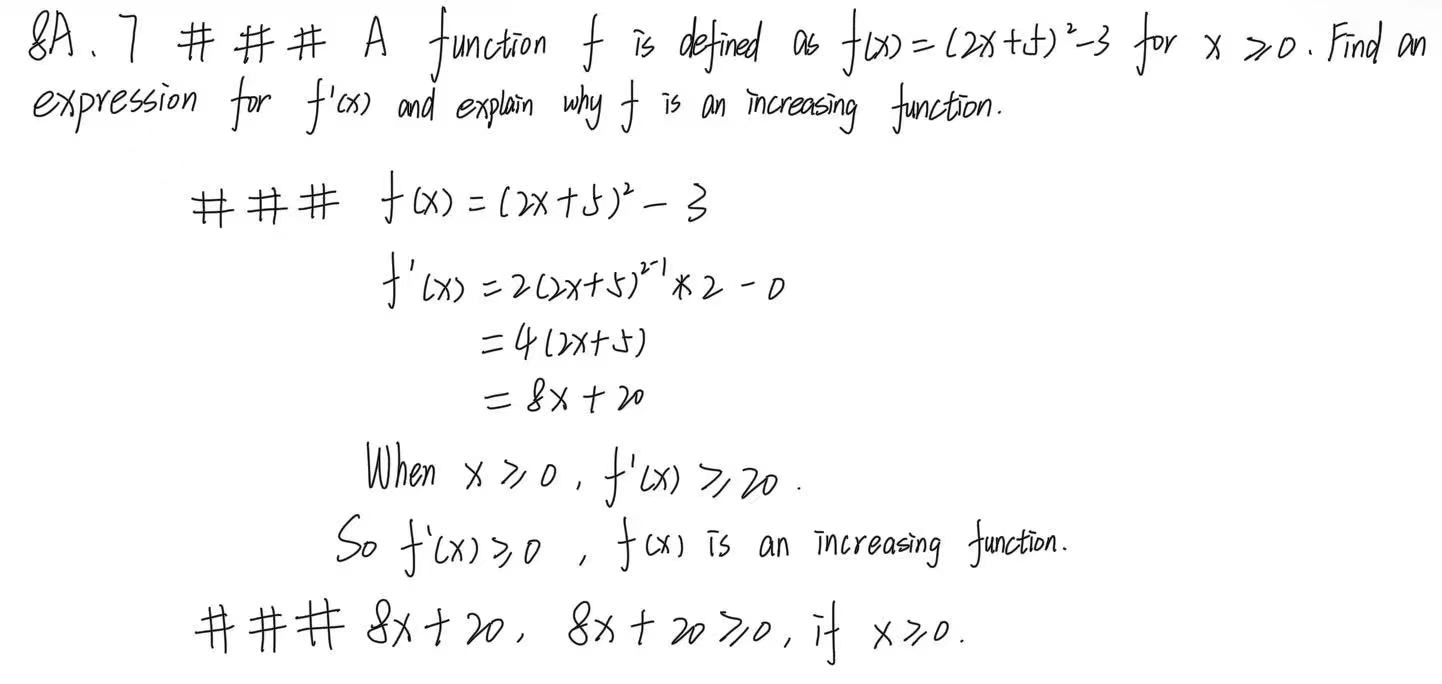 8A.7 ### A function f is defined as f(x)=(2x+5)²-3 for x ⩾0. Find an
expression for f'(x) and explain why f is an increasing function.
### f(x)=(2x+5)²-3
f'(x)=2(2x+5)²⁻¹*2-0
=4(2x+5)
=8x+20
When x⩾0, f'(x)⩾20.
So f'(x)⩾0, f(x) is an increasing function.
### 8x+20, 8x+20⩾0, if x⩾0.